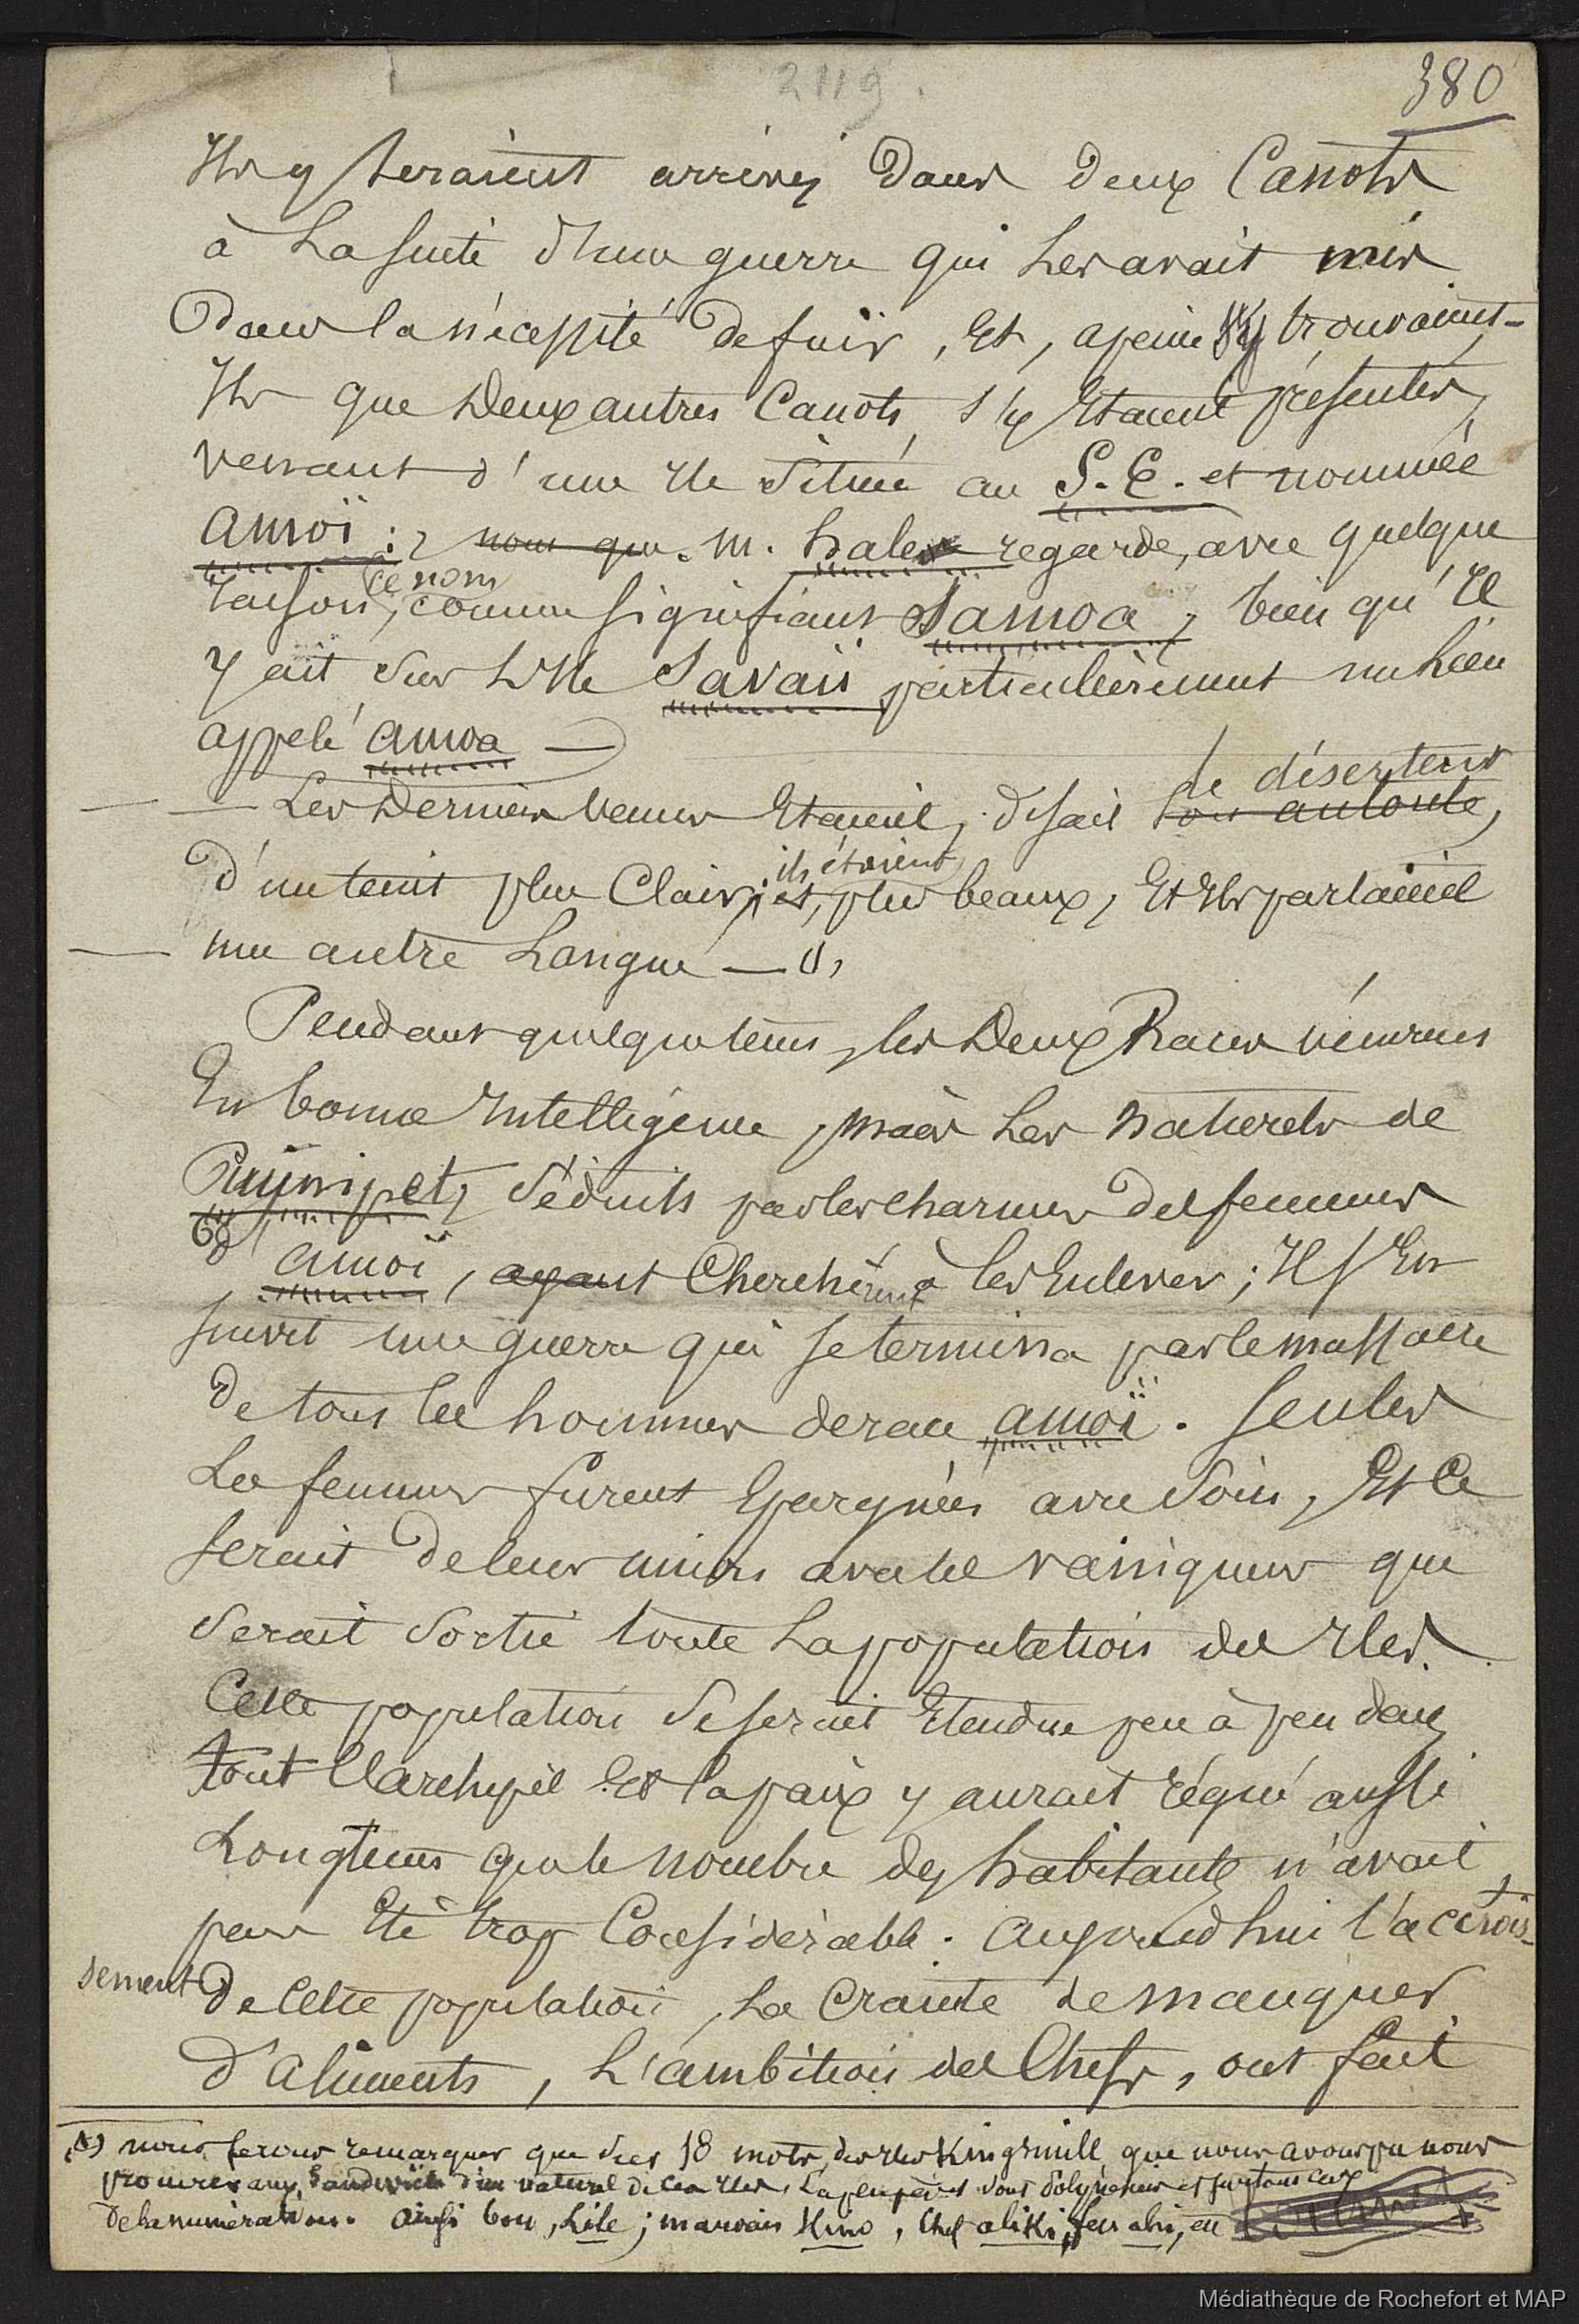 2119.
380
Ils y seraient arrivés dans deux Canots
à la suite d'une guerre qui les avait mis
dans la nécessité de fuir, et, apeine s'y trouvaient-
Ils que deux autres Canots s'y etaient présentés,
venant d'une Ile située au S. E. et nommée
amoï: nom que M. hale regarde, avec quelque
raison, ce nom comme signifiant Samoa, bien qu'il
y ait sur l'Ile Savaii particulièrement un lieu
appelé amoa —
— Les derniers venus etaient, disait son autorité, le déserteur
d'un teint plus clair; et, ils étaient plus beaux, et Ils parlaient
une autre langue — (1),
Pendant quelque tems, les deux Races vécurent
En bonne Intelligence, mais les naturels de
Puynipet, séduits par les charmes des femmes
d'amoï, ayant Cherchèrent à les Enlever; Il s'En
suivit une guerre qui se termina par le massacre
de tous les hommes de race amoï. Seules
les femmes furent Epargnées avec soin, Et Ce
serait de leur union avec les vainqueurs que
serait sortie toute la population des Iles.
Cette population se serait Etendue peu à peu dans
tout l'archipel Et la paix y aurait régné aussi
longtems que le nombre des habitants n'avait
pas Eté trop Considérable. Aujourd'hui l'accrois-
sement de Cette population, la Crainte de manquer
d'aliments, L'ambition des Chefs, ont fait
(1) nous ferons remarquer que sur 18 mots des Iles Kingsmill que nous avons pu nous
procurer aux Sandwich d'un naturel de ces Iles, la plupart sont Polynésiens et surtout ceux
de la numération. Ainsi bon, Lile; mauvais Hino, Chef aliki, feu ahi, eu
Médiathèque de Rochefort et MAP